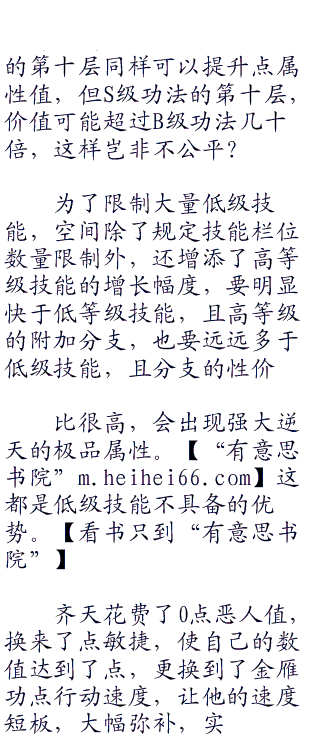 的第十层同样可以提升点属
性值，但S级功法的第十层，
价值可能超过B级功法几十
倍，这样岂非不公平？
为了限制大量低级技
能，空间除了规定技能栏位
数量限制外，还增添了高等
级技能的增长幅度，要明显
快于低等级技能，且高等级
的附加分支，也要远远多于
低级技能，且分支的性价
比很高，会出现强大逆
天的极品属性。【“有意思
书院”m.heihei66.com】这
都是低级技能不具备的优
势。【看书只到“有意思书
院”】
齐天花费了0点恶人值，
换来了点敏捷，使自己的数
值达到了点，更换到了金雁
功点行动速度，让他的速度
短板，大幅弥补，实